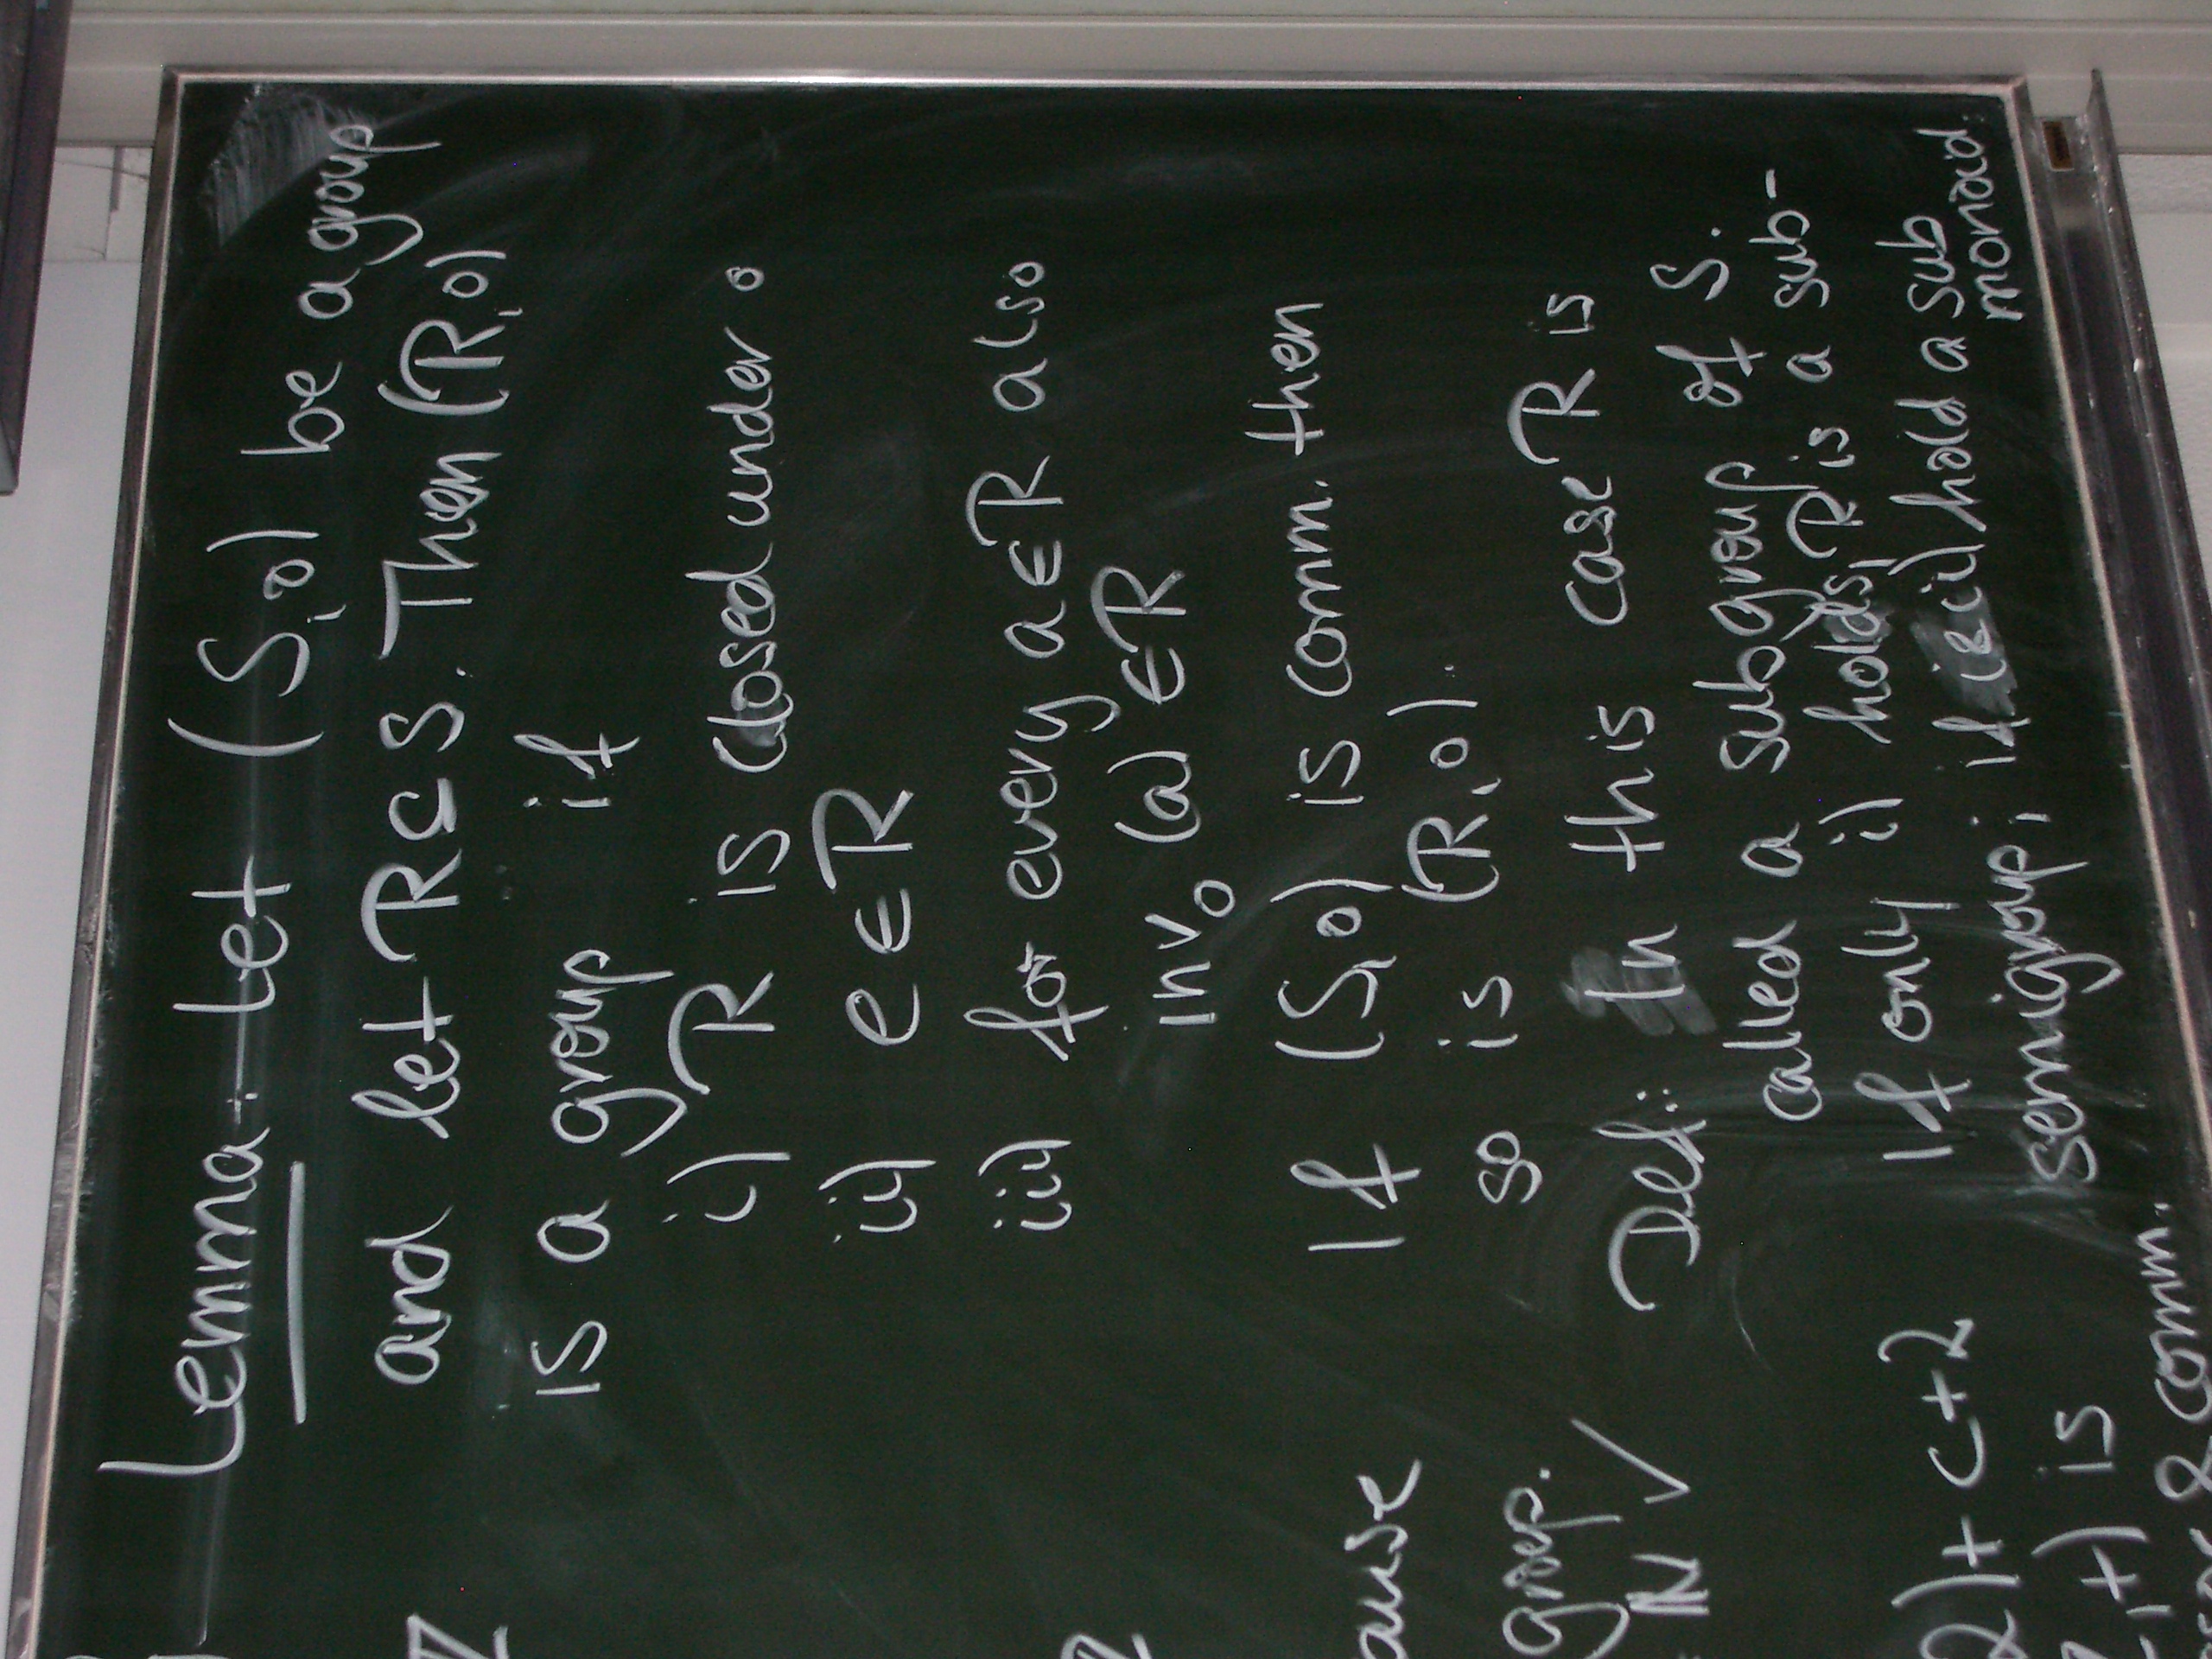 Lemma: Let (S,∘) be a group
and let R⊂S. Then (R,∘)
is a group if
i) R is closed under ∘
ii) e ∈ R
iii) for every a∈R also
inv∘(a) ∈R
If (S,∘) is comm. then
so is (R,∘).
Def: In this case R is
called a subgroup of S.
If only i) holds, R is a sub-
semigroup; if i,ii) hold a sub
monoid.
ause
group.
N ✓
2)+c+2
,+) is
& comm.